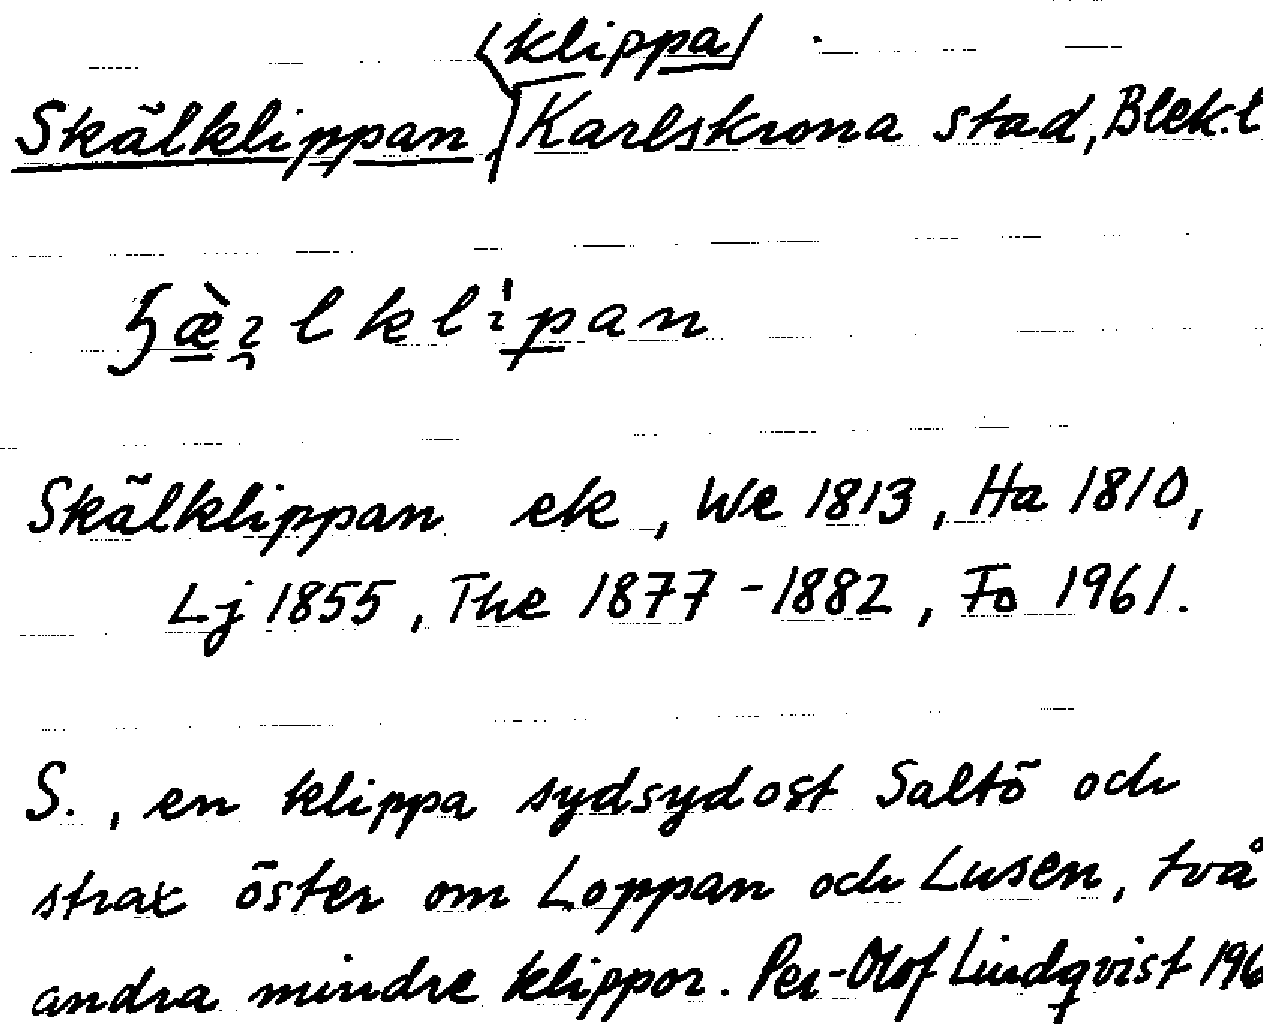 (klippa)
Skälklippan, Karlskrona stad, Blek.l
Skälklippan ek, We 1813, Ha 1810,
Lj 1855, The 1877-1882, Fo 1961.
S., en klippa sydsydost Saltö och
strax öster om Loppan och Lusen, två
andra mindre klippor. Per-Olof Lindqvist 196